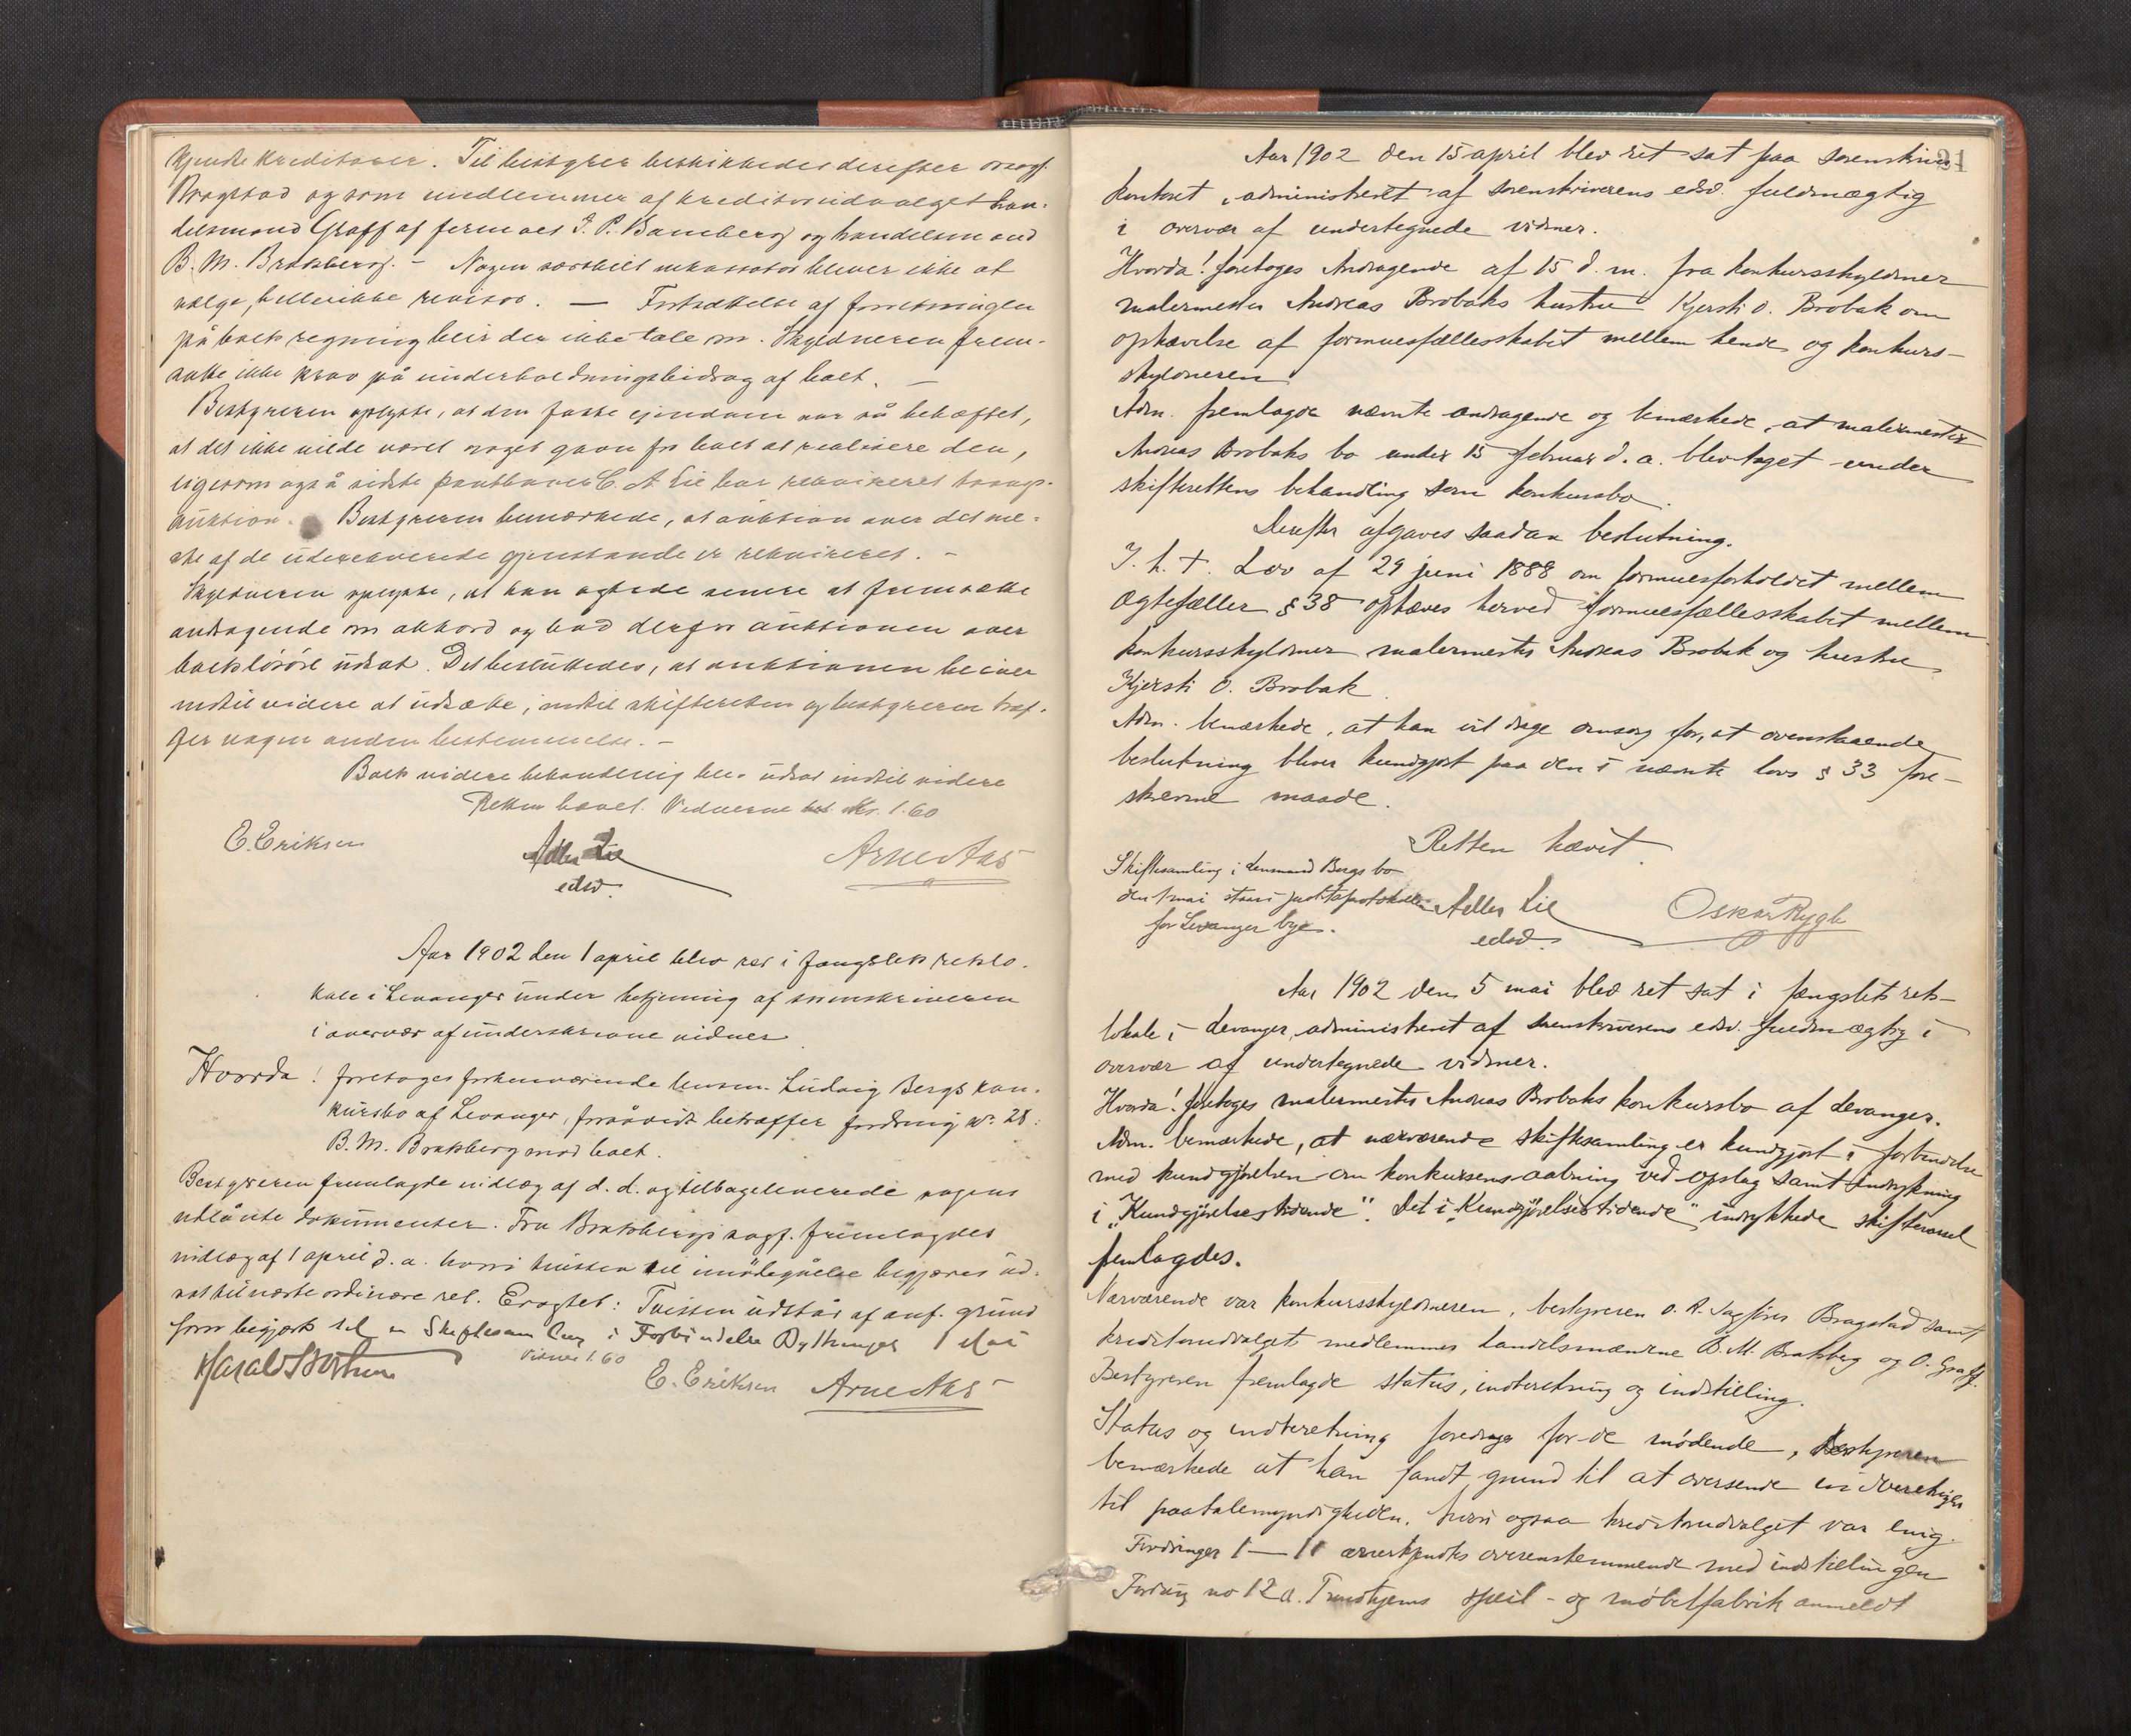 kjendte kreditorer. Til bestyrer beskikkedes derefter orsagf.
Bragstad og som medlemmer af kreditorudvalget han-
delsmand Graff af firmaet J. P. Bamberg og handelsmand
B. M. Bratsberg. – Nogen særskilt inkassator bliver ikke at
vælge, hellerikke revisor. — Fortsættelse af forretningen
på boets regning blir der ikke tale om. Skyldneren frem-
satte ikke krav på underholdningsbidrag af boet. –
Bestyreren oplyste, at den faste eiendom var så behæftet,
at det ikke vilde være noget gavn for boet at realisere den,
ligesom også sidste panthaver C. A. Lie har rekvireret tvangs-
auktion. Bestyreren bemærkede, at auktion over det me-
ste af de uderoverede gjenstande er rekvireret. –
Skyldneren oplyste, at han agtede senere at fremsætte
andragende om akkord og bad derfor auktionen over
boets løsøre udsat. Det besluttedes, at auktionen bliver
indtil videre at udsætte, indtil skifteretten og bestyreren træf-
fer nogen anden bestemmelse. –
Boets videre behandling blev udsat indtil videre
Retten hævet. Vidnerne bet. Kr. 1.60
E. Eriksen Adler Lie Arne Aas
edsv.
Aar 1902 den 1 april blev ret i fængslets retslo-
kale i Levanger under betjening af sorenskriveren
i overvær af underskrevne vidner
Hvorda! foretoges forhenværende lensm. Ludvig Bergs kon-
kursbo af Levanger, forsåvidt betræffer fordring No 28:
B. M. Bratsberg mod boet.
Bestyreren fremlagde indlæg af d. d. og tilbageleverede sagens
udlånte dokumenter. Fra Bratsbergs sagf. fremlagdes
indlæg af 1 april d. a. hvori tvisten til imødegåelse begjæres ud-
sat til næste ordinære ret. Eragtet: Tvisten udstår af anf. grund
som begjært til en Skiftesamling i Forbindelse Dyttinger 1 Mai
Vidner 1.60
Harald Bothner E. Eriksen Arne Aas
21
Aar 1902 den 15 april blev ret sat paa sorenskriver-
kontoret, administreret af sorenskriverens edsv. fuldmægtig
i overvær af undertegnede vidner.
Hvorda! foretoges Andragende af 15 d. m. fra konkursskyldner
malermester Andreas Brobaks hustru Kjersti O. Brobak om
ophævelse af formuesfællesskabet mellem hende og konkurs-
skyldneren.
Adm. fremlagde nævnte andragende og bemærkede, at malermester
Andreas Brobaks bo under 15 februar d. a. blev taget under
skifterettens behandling som konkursbo.
Derefter afgaves saadan beslutning.
I. h. t. Lov af 29 juni 1888 om formuesforholdet mellem
Ægtefæller § 38 ophæves herved formuesfællesskabet mellem
konkursskyldner malermester Andreas Brobak og hustru
Kjersti O. Brobak.
Adm. bemærkede, at han vil drage omsorg for, at ovenstaaende
beslutning bliver kundgjort paa den i nævnte lovs § 33 fore-
skrevne maade.
Retten hævet.
Skiftesamling i lensmand Bergs bo
den 1 mai staar i justitsprotokollen
for Levanger bye.
Adler Lie Oskar Rygh
edsv.
Aar 1902 den 5 mai blev ret sat i fængslets rets-
lokale i Levanger, administreret af sorenskriverens edsv. fuldmægtig i
overvær af undertegnede vidner.
Hvorda! foretoges malermester Andreas Brobaks konkursbo af Levanger.
Adm. bemærkede, at nærværende skiftesamling er kundgjort i forbindelse
med kundgjørelsen om konkursens aabning ved opslag samt indrykning
i „Kundgjørelsestidende“. Det i „Kundgjørelsestidende“ indrykkede skiftevarsel
fremlagdes.
Nærværende var konkursskyldneren, bestyreren o. r. sagfører Bragstad samt
kreditorudvalgets medlemmer handelsmændene B. M. Bratsberg og O. Graff.
Bestyreren fremlagde status, indberetning og indstilling.
Status og indberetning foredroges for de mødende, Bestyreren
bemærkede at han fandt grund til at oversende indberetningen
til paatalemyndigheden, hvori ogsaa kreditorudvalget var enig.
Fordringer 1 — 11 anerkjendtes overensstemmende med indstillingen
Fordring no 12 a. Trondhjems speil- og møbelfabrik anmeldt